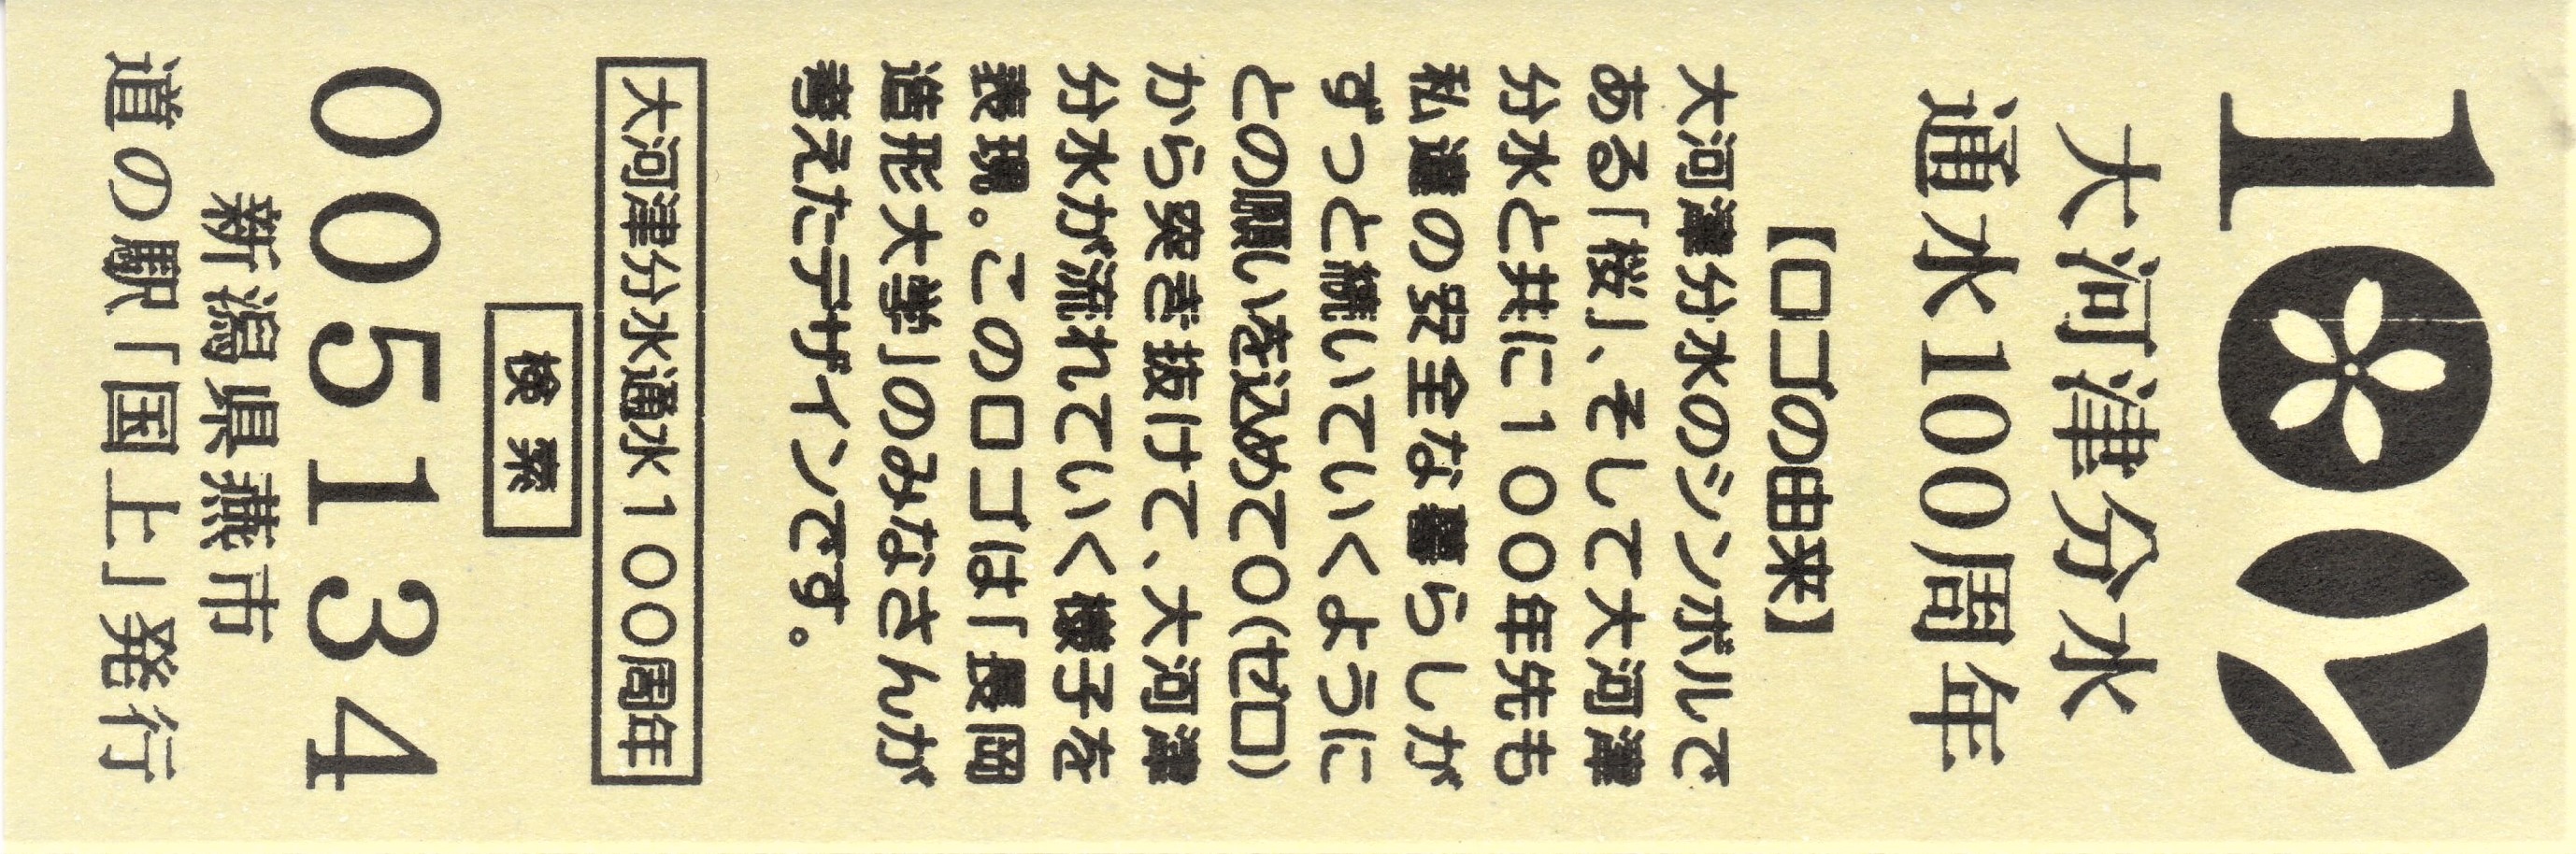 100
大河津分水
通水100周年
【ロゴの由来】
大河津分水のシンボルで
ある「桜」、そして大河津
分水と共に１００年先も
私達の安全な暮らしが
ずっと続いていくように
との願いを込めて０(ゼロ)
から突き抜けて、大河津
分水が流れていく様子を
表現。このロゴは「長岡
造形大学」のみなさんが
考えたデザインです。
大河津分水通水１００周年
検索
005134
新潟県燕市
道の駅「国上」発行